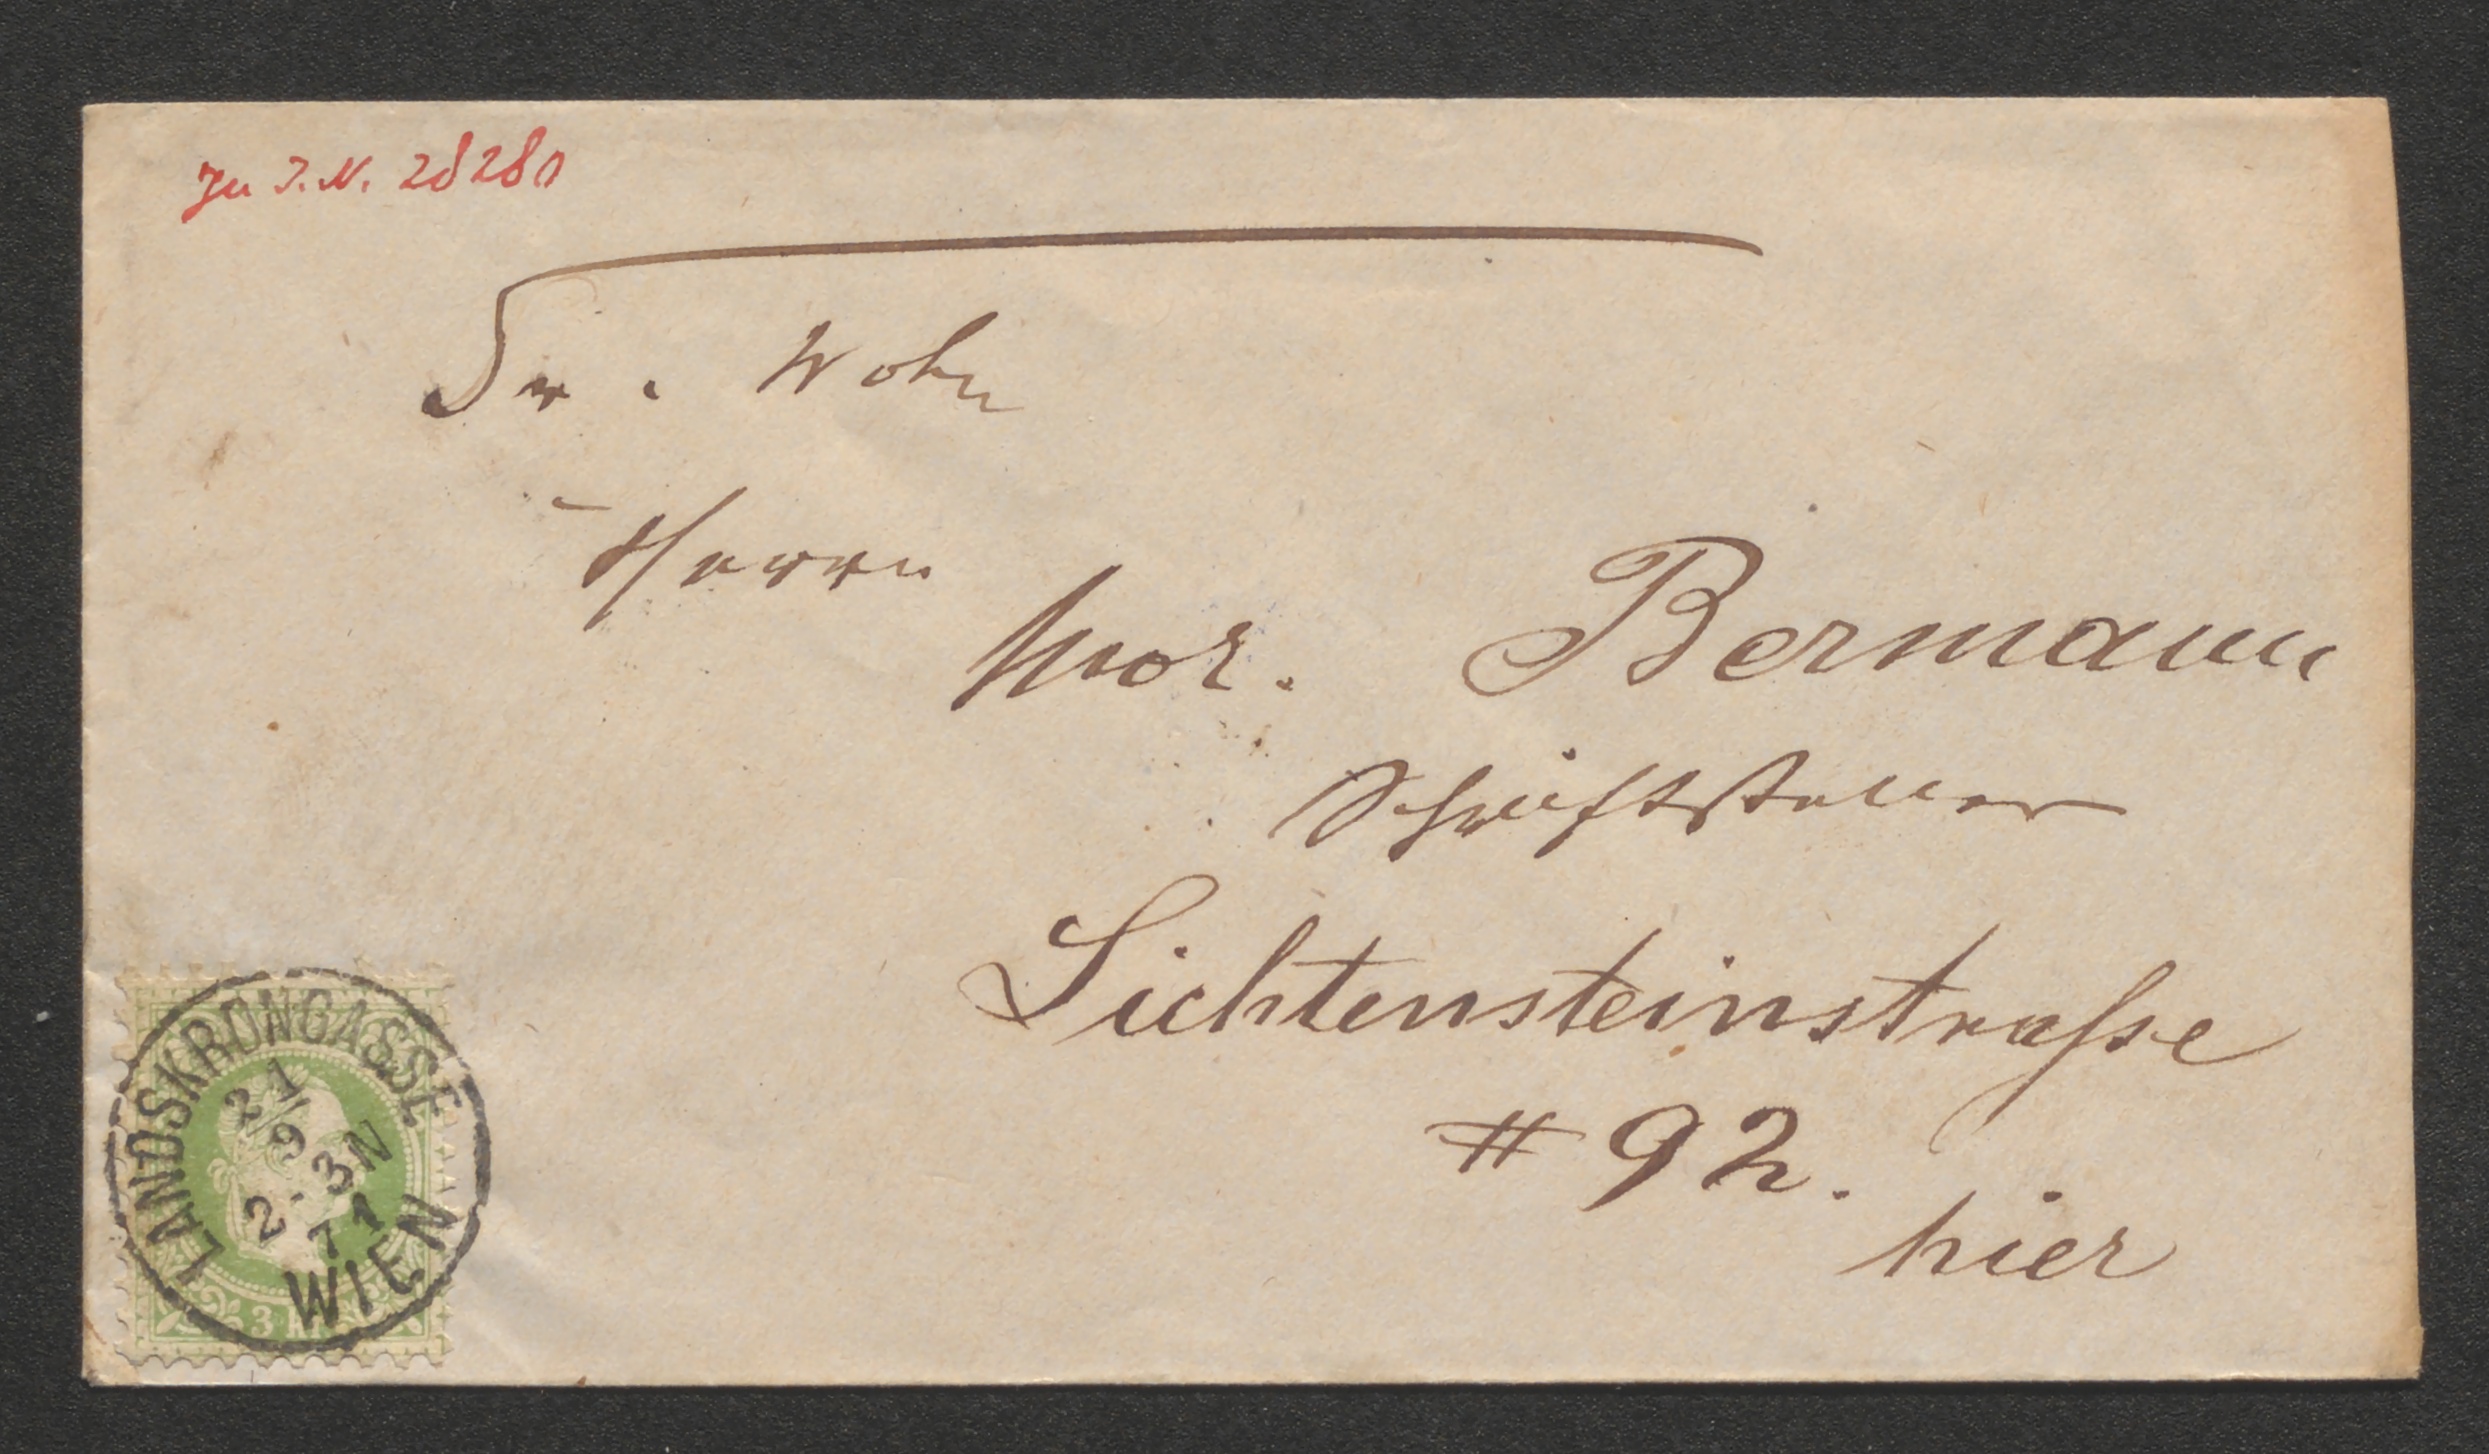 Zu I.N. 28280
Sr. Wohl
Herrn
Mor. Bermann
Schriftsteller
Lichtensteinstraſse
# 92.
hier
LANDSKRONGASSE
21
9
2-3N
71
WIEN
3 KR